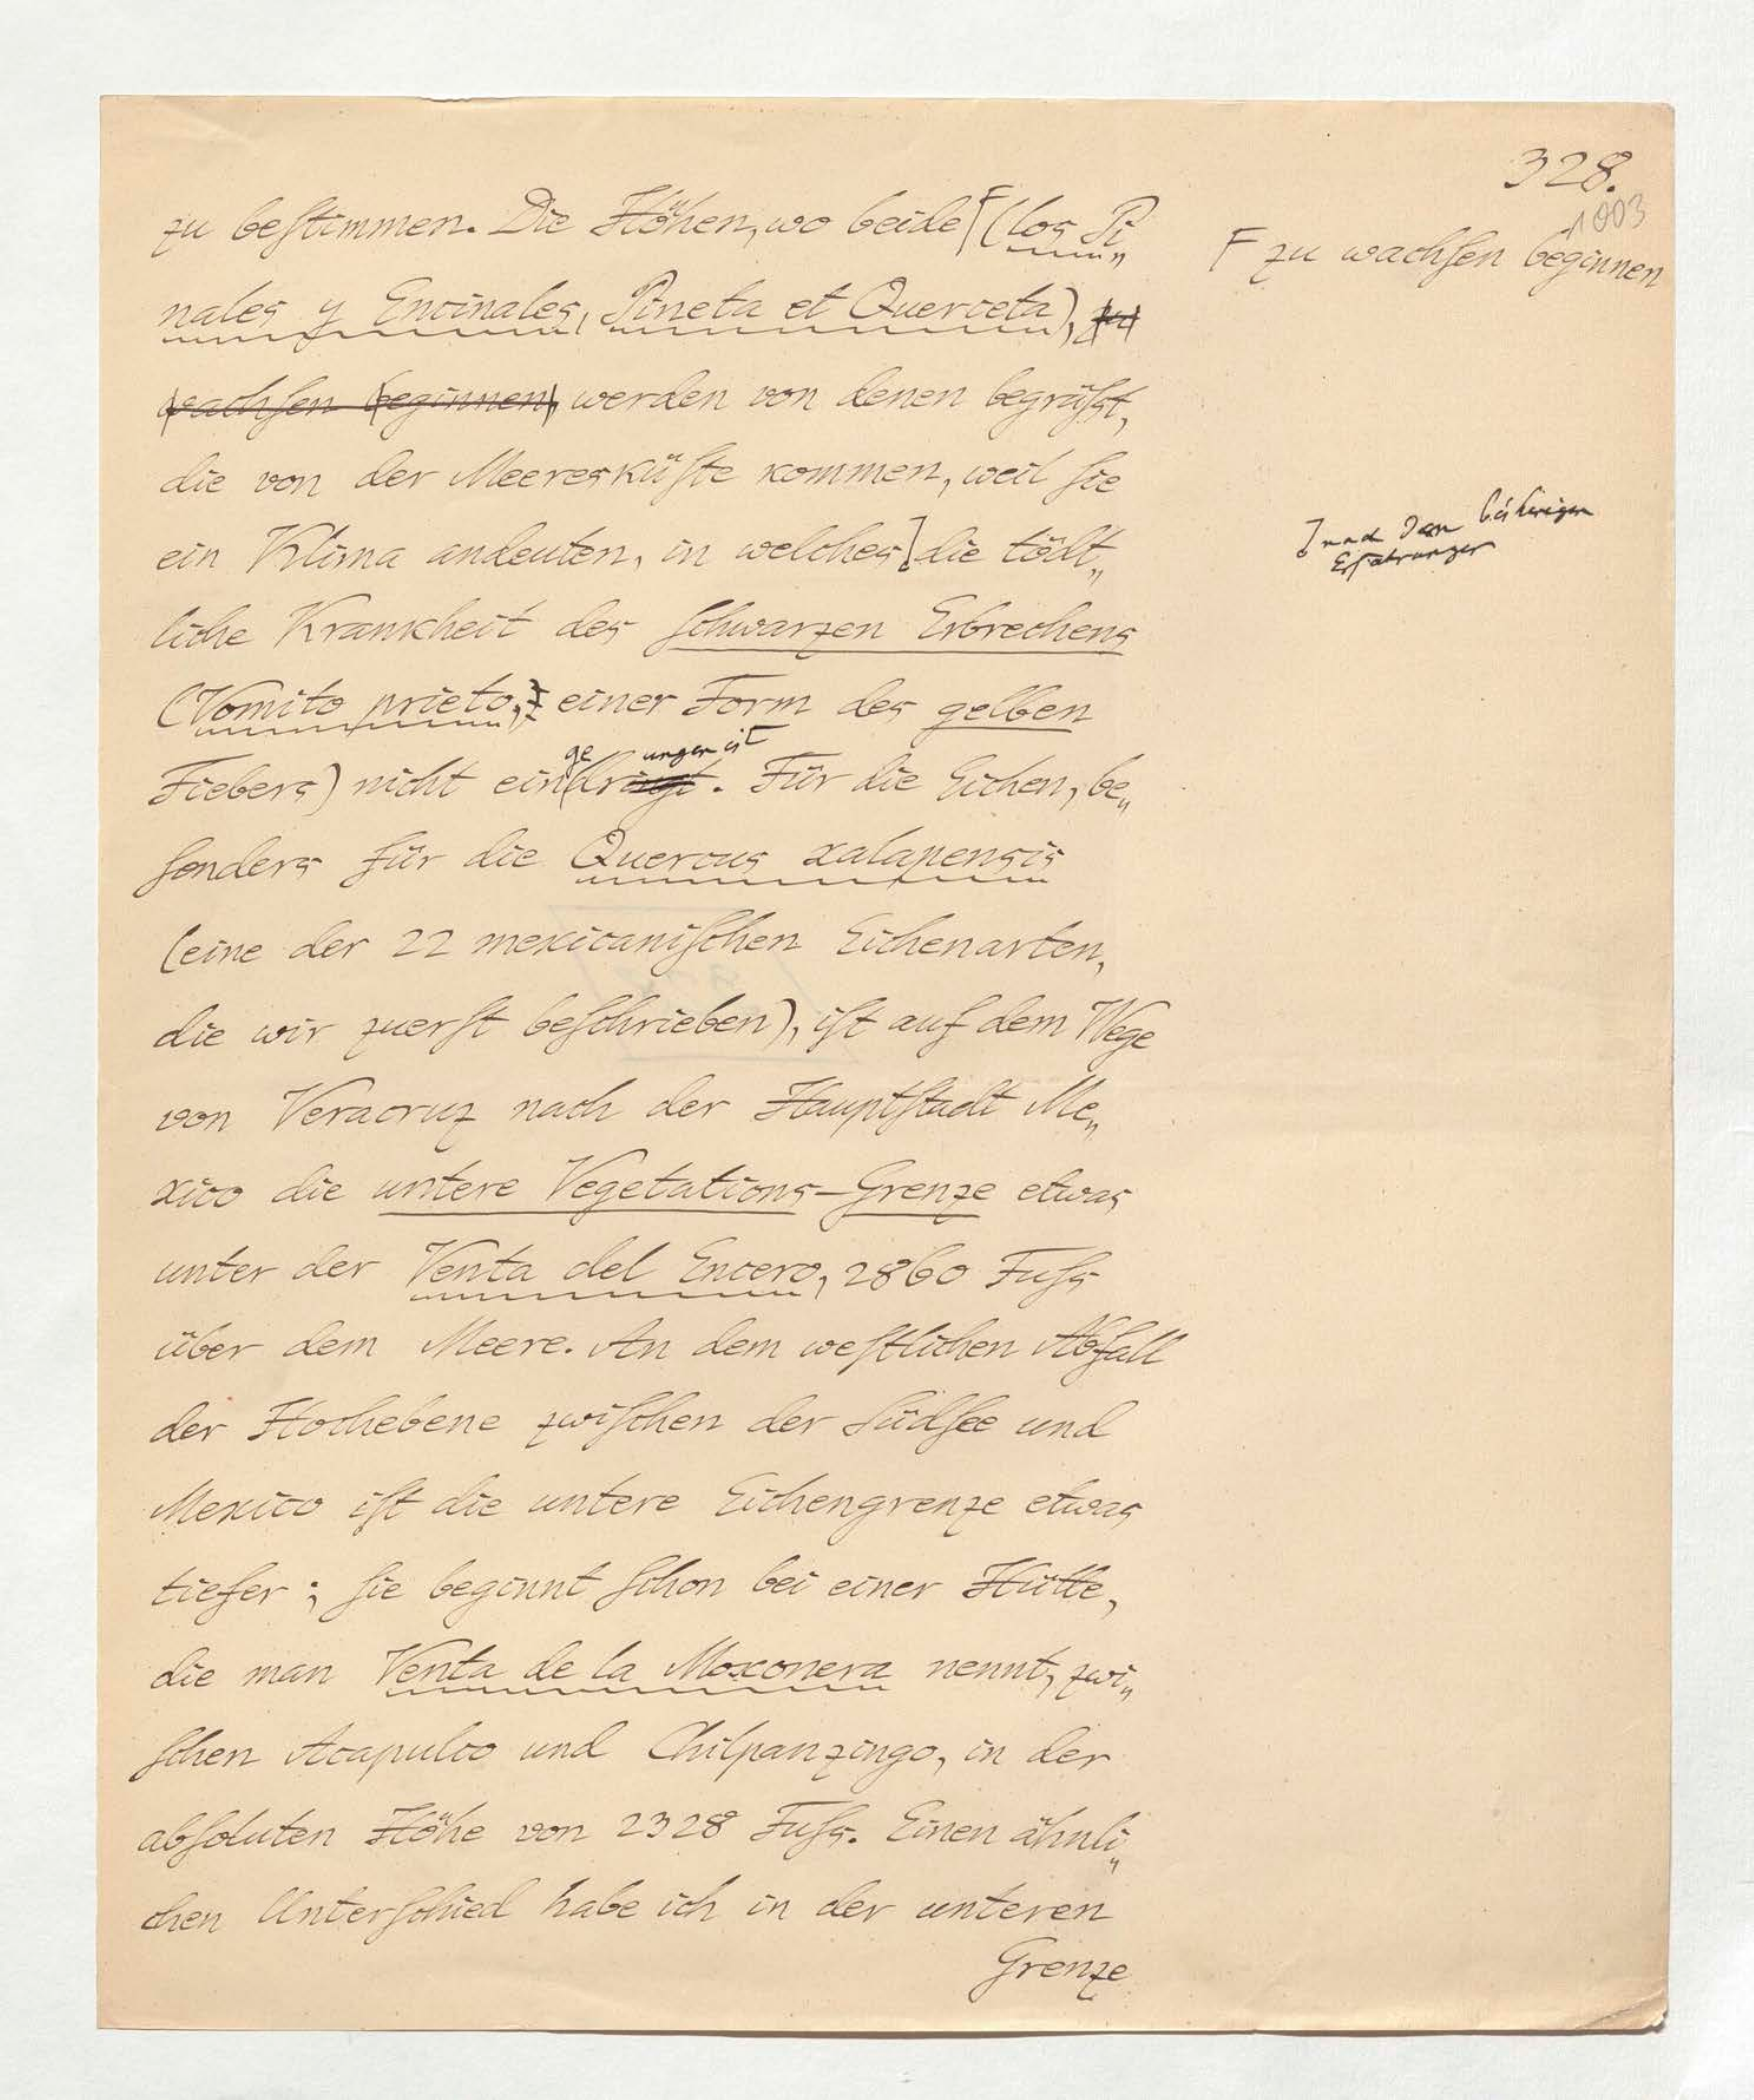 328.
1003
zu beſtimmen. Die Höhen, wo beide (los Pi„
F zu wachſen beginnen
nales y Encinales, Pineta et Querceta), zu
wachſen beginnen, werden von denen begrüſst,
die von der Meeresküſte kommen, weil ſie
ein Klima andeuten, in welches die tödt„
nach den bisherigen
Erfahrungen
liche Krankheit des ſchwarzen Erbrechens
(Vomito prieto, einer Form des gelben
ge ungen iſt
Fiebers) nicht eindringt. Für die Eichen, be„
ſonders für die Quercus xalapensis
(eine der 22 mexicaniſchen Eichenarten,
die wir zuerſt beſchrieben), iſt auf dem Wege
von Veracruz nach der Hauptſtadt Me„
xico die untere Vegetations-Grenze etwas
unter der Venta del Encero, 2860 Fuſs
über dem Meere. An dem weſtlichen Abfall
der Hochebene zwiſchen der Südſee und
Mexico iſt die untere Eichengrenze etwas
tiefer; ſie beginnt ſchon bei einer Hütte,
die man Venta de la Moxonera nennt, zwi„
ſchen Acapulco und Chilpanzingo, in der
abſoluten Höhe von 2328 Fuſs. Einen ähnli„
chen Unterſchied habe ich in der unteren
Grenze